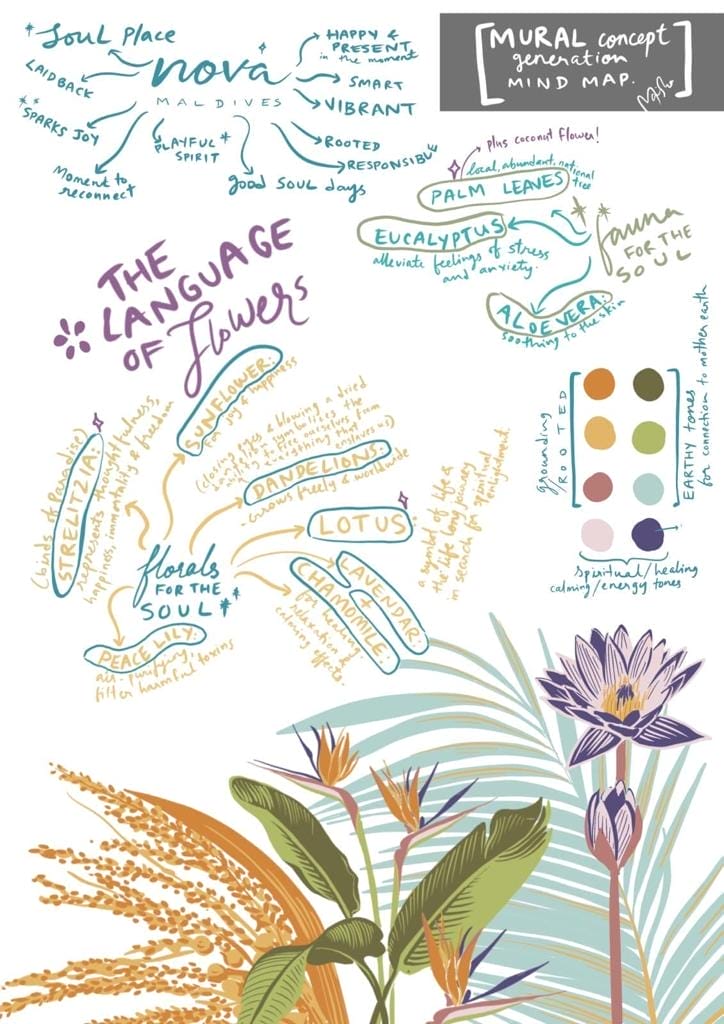 MURAL concept
generation
MIND MAP.
Soul Place
LAIDBACK
SPARKS JOY
Moment to
reconnect
nova
MALDIVES
PLAYFUL
SPIRIT
good SOUL days
HAPPY &
PRESENT
in the moment
SMART
VIBRANT
ROOTED
RESPONSIBLE
plus coconut flower!
local, abundant, national
tree
PALM LEAVES
EUCALYPTUS
alleviate feelings of stress
and anxiety.
ALOE VERA:
soothing to the skin
fauna
FOR THE
SOUL
THE
LANGUAGE
OF flowers
SUNFLOWER:
for joy & happiness
(birds of Paradise)
STRELITZIA:
represents thoughtfulness,
happiness, immortality & freedom
(closing eyes & blowing a dried
dandelion symbolizes the
ability to free ourselves from
everything that enslaves us)
DANDELIONS:
- Grows freely & worldwide
LOTUS
a symbol of life &
the life long journey
in search for spiritual
enlightenment.
LAVENDAR
+
CHAMOMILE:
for healing,
relaxation &
calming effects.
florals
FOR THE
SOUL
PEACE LILY:
air-purifying,
filter harmful toxins
grounding
ROOTED
EARTHY tones
for connection to mother earth
spiritual/healing
calming/energy tones